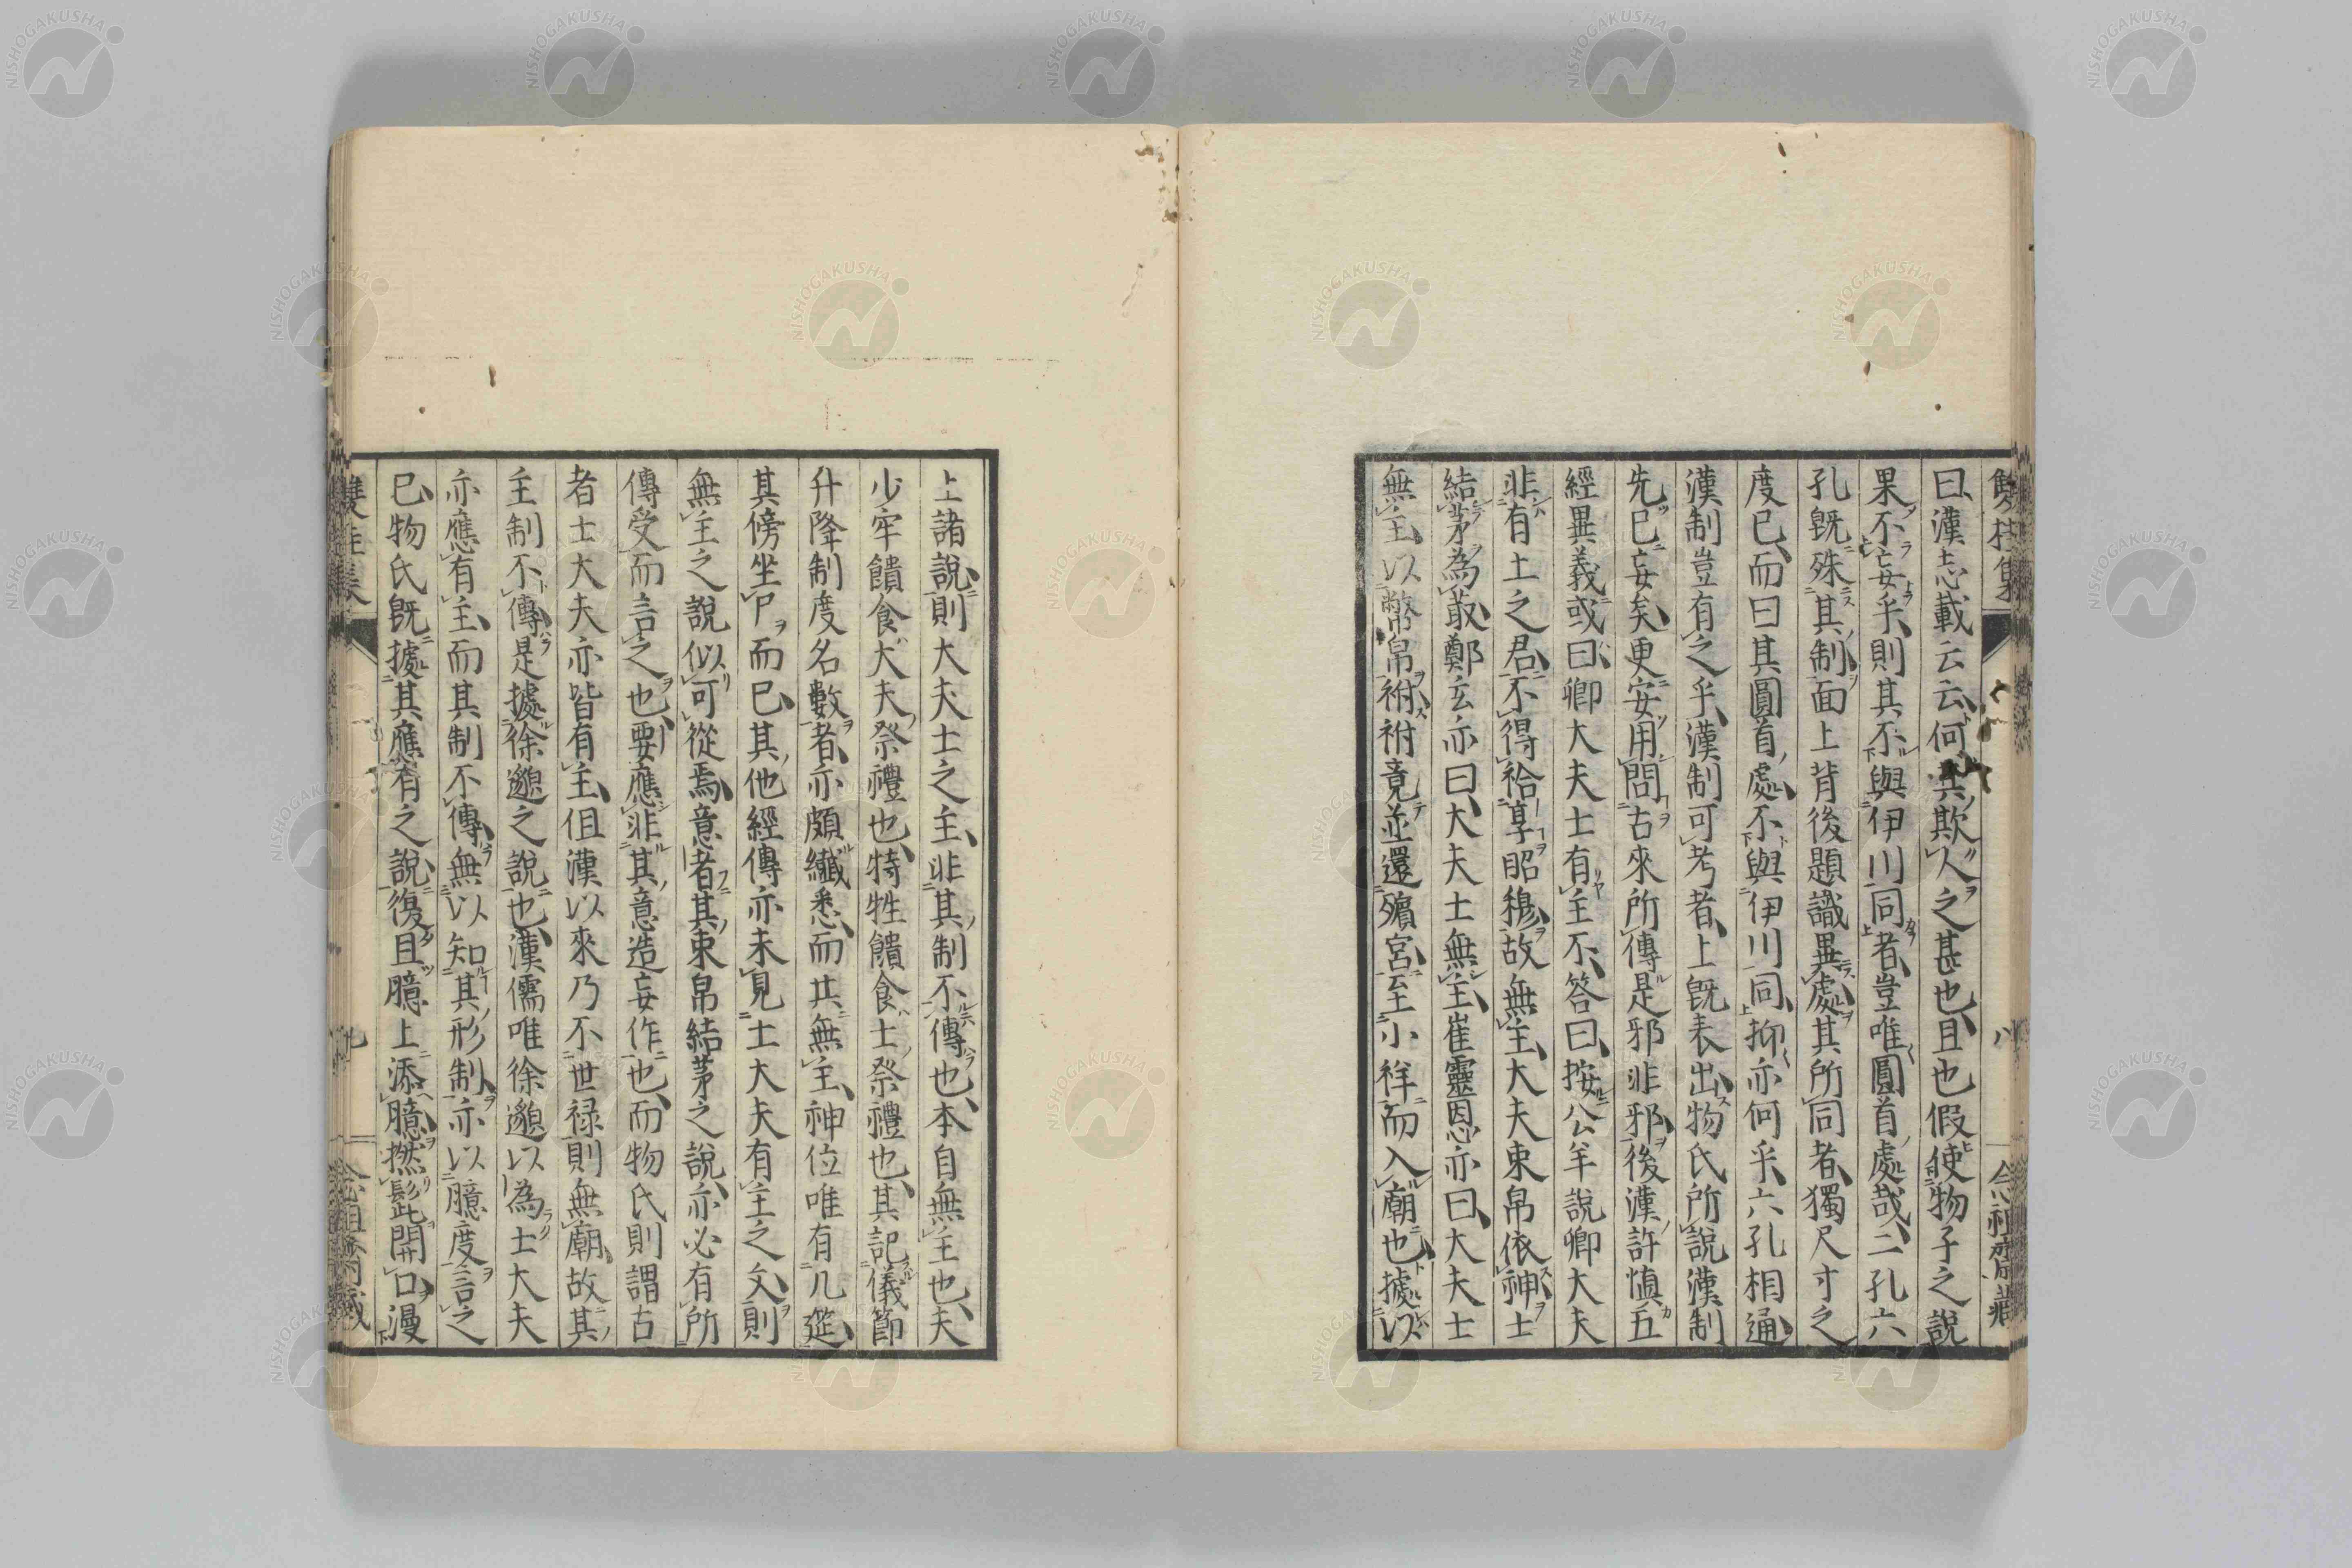 曰漢志載云云何其欺人之甚也且也假使物子之說
果不妄乎則其不與伊川同者豈唯圓首處哉二孔六
孔既殊其制面上背後題識異處其所同者獨尺寸之
度已而曰其圓首處不與伊川同抑亦何乎六孔相通
漢制豈有之乎漢制可考者上既表出物氏所說漢制
先已妄矣更安用問古來所傳是邪非邪後漢許慎五
經異義或曰卿大夫士有主不答曰按公羊說卿大夫
非有土之君不得祫享昭穆故無主大夫束帛依神士
結茅為菆鄭玄亦曰大夫士無主崔靈恩亦曰大夫士
無主以幣帛祔祔竟並還殯宮至小祥而入廟也據以
上諸說則大夫士之主非其制不傳也本自無主也夫
少牢饋食大夫祭禮也特牲饋食士祭禮也其記儀節
升降制度名數者亦頗纖悉而共無主神位唯有几筵
其傍坐尸而已其他經傳亦未見士大夫有主之文則
無主之說似可從焉意者其束帛結茅之說亦必有所
傳受而言之也要應非其意造妄作也而物氏則謂古
者士大夫亦皆有主但漢以來乃不世祿則無廟故其
主制不傳是據徐邈之說也漢儒唯徐邈以為士大夫
亦應有主而其制不傳無以知其形制亦以臆度言之
已物氏既據其應有之說復且臆上添臆撚髭開口漫
雙桂集
八
念祖齋藏
九
NISHOGAKUSHA